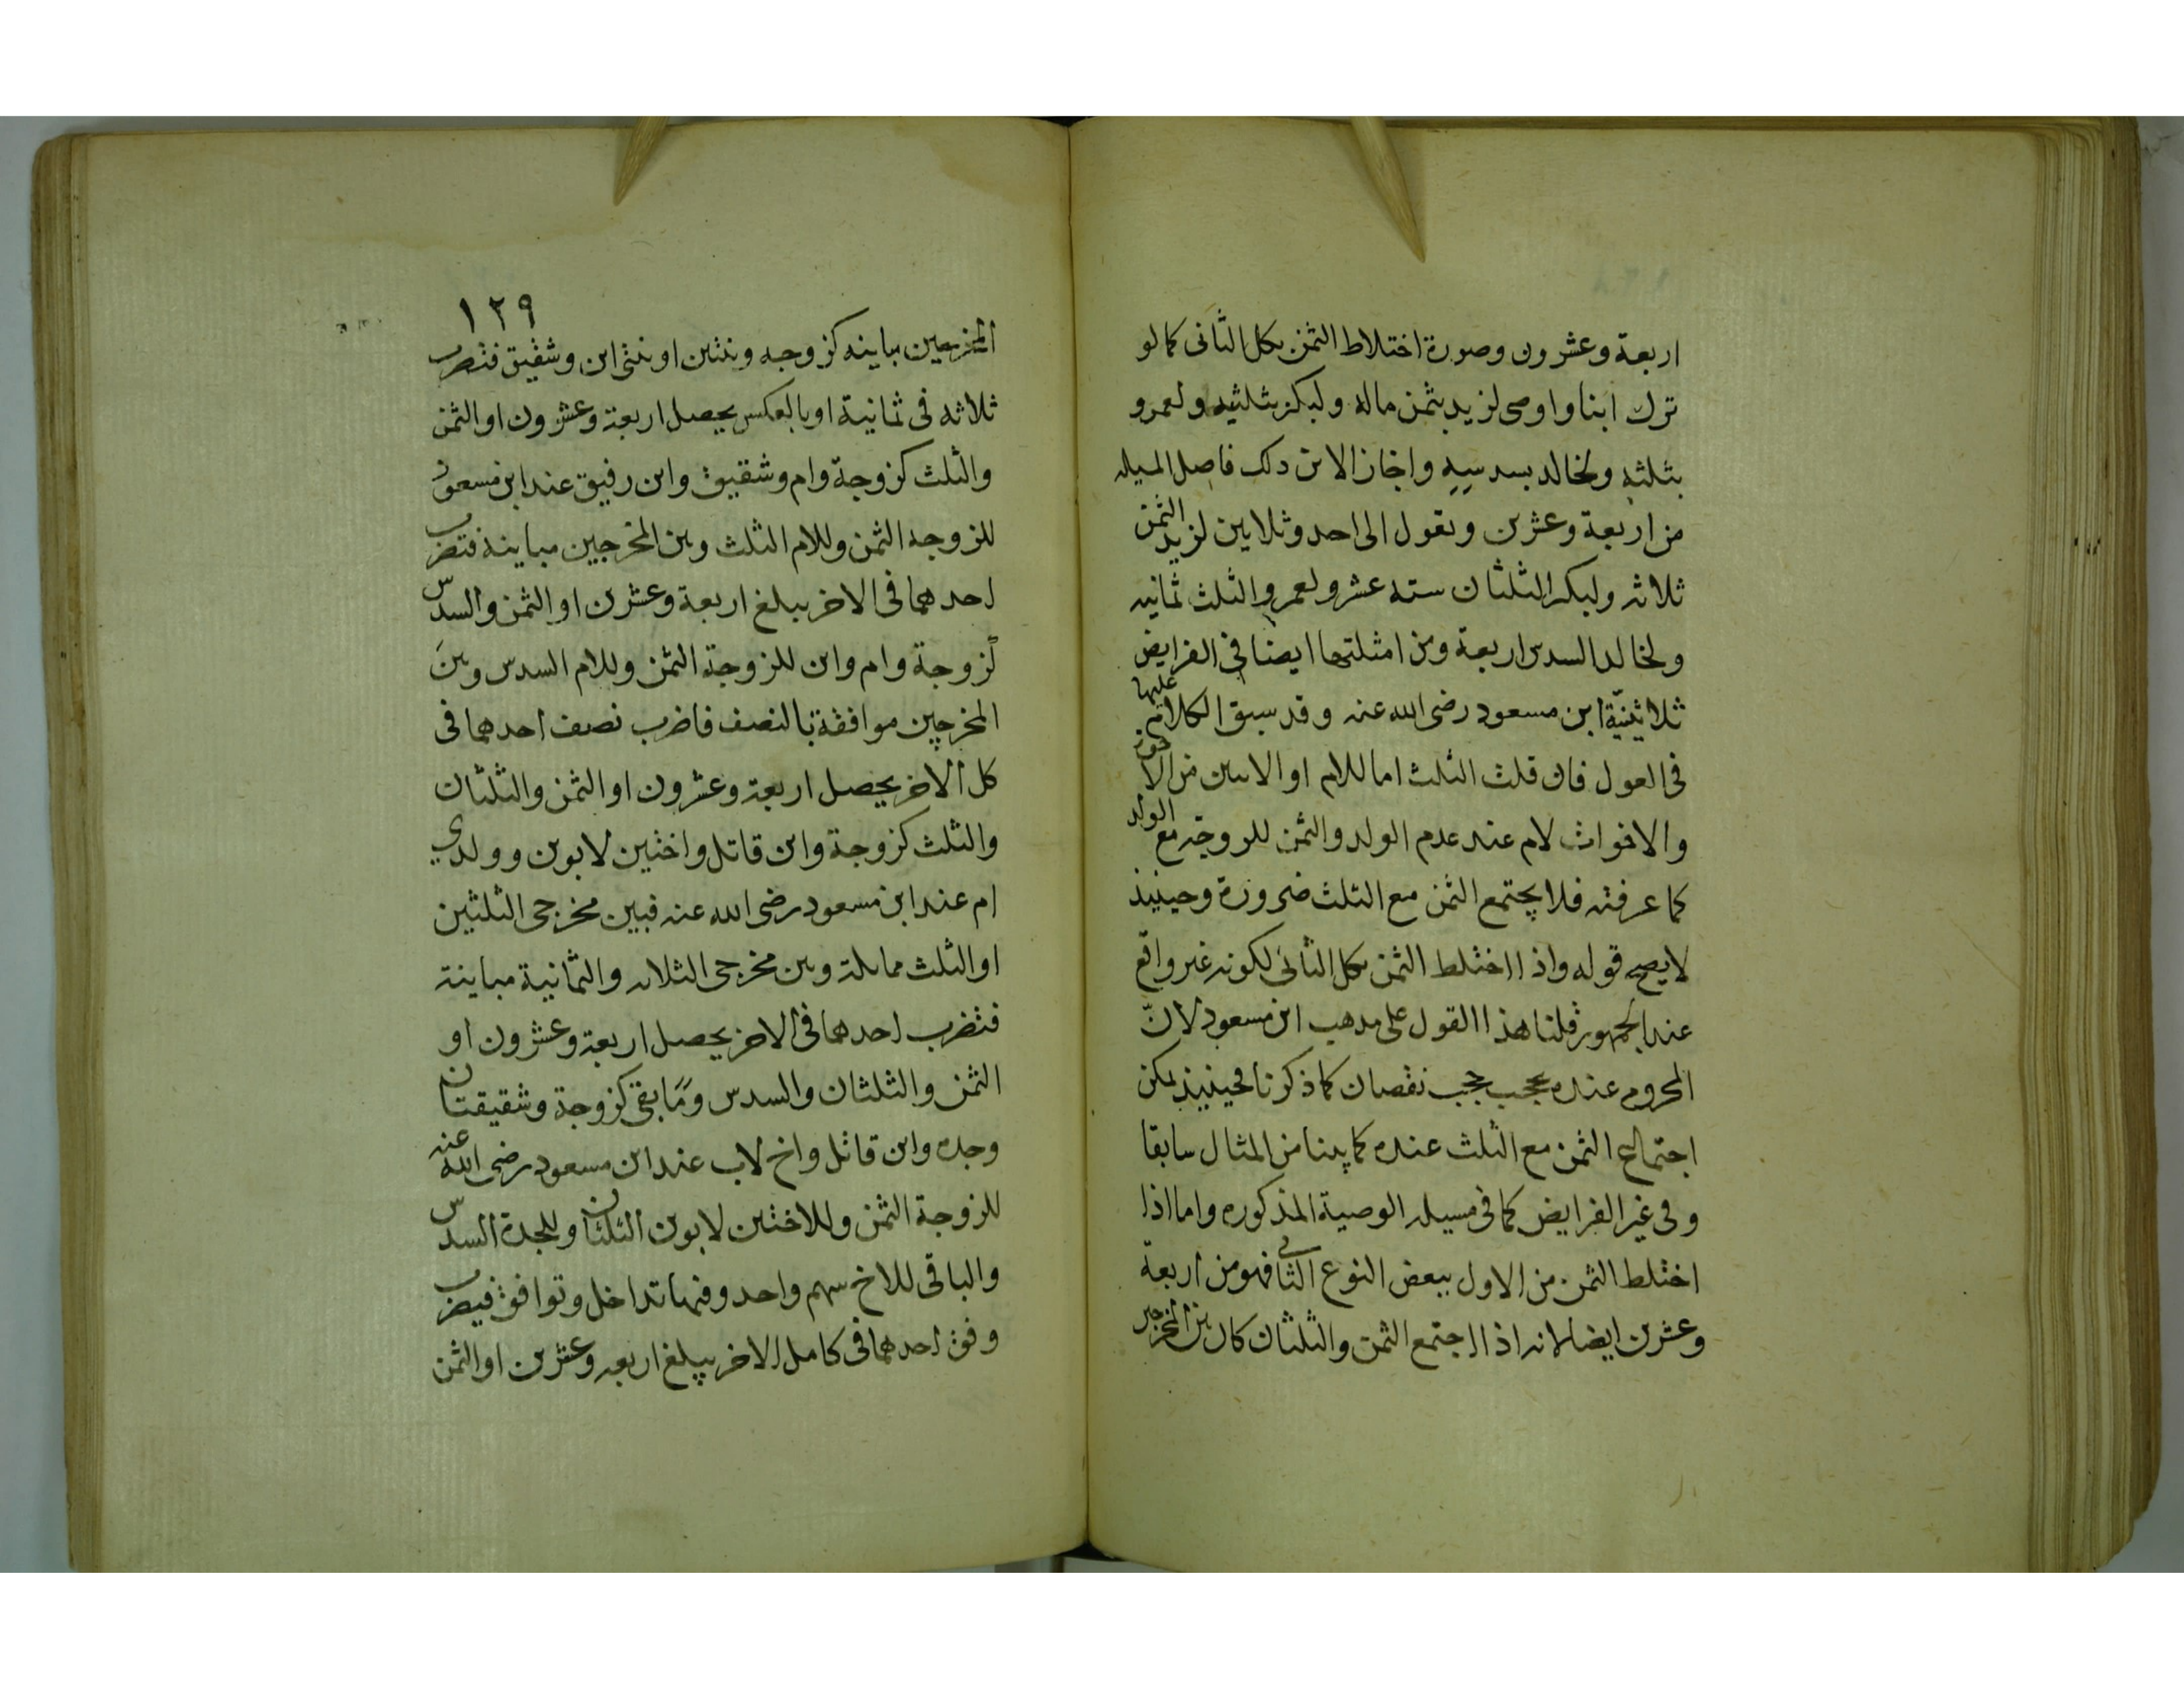 اربعة وعشرون وصورة اختلاط الثمن بكل الثانى كما لو
ترك ابنا واوصى لزيد بثمن ماله ولبكر بثلثيه ولعمرو
بثلثه ولخالد بسدسيه واجاز الابن ذلك فاصل المسيله
من اربعة وعشرين وتعول الى احد وثلاثين لزيد الثمن
ثلاثه ولبكر الثلثان سته عشر ولعمرو الثلث ثمانيه
ولخالد السدس اربعة ومن امثلتها ايضا فى الفرايض
ثلاثينيّة ابن مسعود رضى الله عنه وقد سبق الكلام عليها
فى العول فان قلت الثلث اما للام او الاثنين من الاخوة
والاخوات لام عند عدم الولد والثمن للزوجة مع الولد
كما عرفته فلا يجتمع الثمن مع الثلث ضرورة وحينيذ
لا يصح قوله واذا اختلط الثمن بكل الثانى لكونه غير واقع
عند الجمهور قلنا هذا القول على مذهب ابن مسعود لانّ
المحروم عنده يحجب حجب نقصان كما ذكرنا فحينيذ يمكن
اجتماع الثمن مع الثلث عنده كما بينا من المثال سابقا
وفى غير الفرايض كما فى مسيله الوصية المذكوره واما اذا
اختلط الثمن من الاول ببعض النوع الثانى فهو من اربعة
وعشرين ايضا لانه اذا اجتمع الثمن والثلثان كان بين المخرجين
١٢٩
المخرجين مباينه كزوجه وبنتين او بنتى ابن وشقيق فتضرب
ثلاثه فى ثمانية او بالعكس يحصل اربعة وعشرون او الثمن
والثلث كزوجة وام وشقيق وابن رفيق عند ابن مسعود
للزوجه الثمن وللام الثلث وبين المخرجين مباينة فتضرب
احدهما فى الاخر يبلغ اربعة وعشرين او الثمن والسدس
لزوجة وام وابن للزوجة الثمن وللام السدس وبين
المخرجين موافقة بالنصف فاضرب نصف احدهما فى
كل الاخر يحصل اربعة وعشرون او الثمن والثلثان
والثلث كزوجة وابن قاتل واختين لابوين وولدي
ام عند ابن مسعود رضى الله عنه فبين مخرجى الثلثين
او الثلث مماثلة وبين مخرجى الثلاثه والثمانية مباينة
فتضرب احدهما فى الاخر يحصل اربعة وعشرون او
الثمن والثلثان والسدس وما بقى كزوجة وشقيقتان
وجده وابن قاتل واخ لاب عند ابن مسعود رضى الله عنه
للزوجة الثمن وللاختين لابوين الثلثان وللجدة السدس
والباقى للاخ سهم واحد وفيها تداخل وتوافق فيضرب
وفق احدهما فى كامل الاخر يبلغ اربعه وعشرين او الثمن